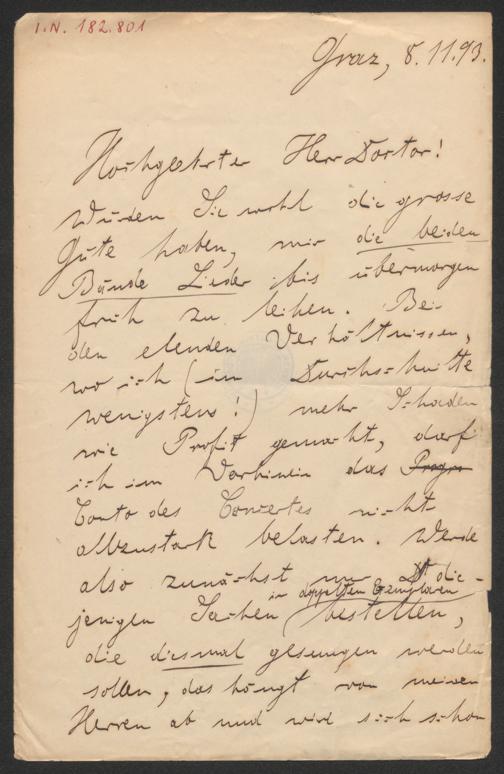 I.N. 182.801
Graz, 8.11.93.
Hochgeehrter Herr Doctor!
Würden Sie wohl die grosse
Güte haben, mir die beiden
Bände Lieder bis übermorgen
früh zu leihen. Bei
den elenden Verhältnissen,
wo ich (im Durchschnitte
wenigstens!) mehr Schaden
wie Profit gemacht, darf
ich im Vorhinein das Progr
Conto des Concertes nicht
allzustark belasten. Werde
also zunächst nur die-
in doppelten Exemplaren
jenigen Sachen bestellen,
die diesmal gesungen werden
sollen, das hängt von meinen
Herren ab und wird sich schon